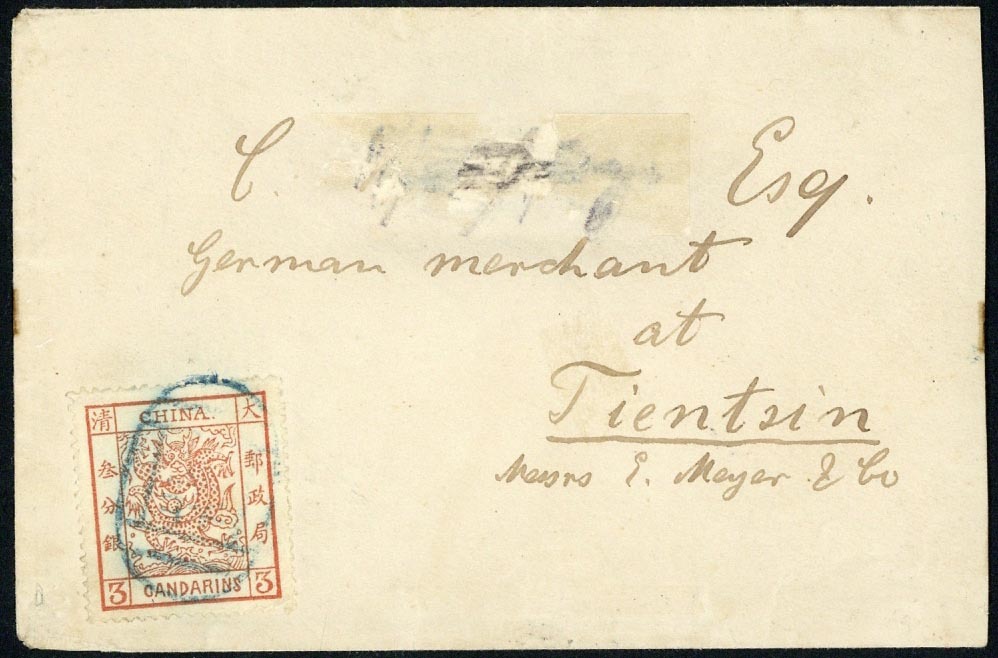 C. Esq.
German merchant
at
Tientsin
Messrs E. Meyer & Co
清 CHINA. 大
叁分銀
郵政局
3 CANDARINS 3
D